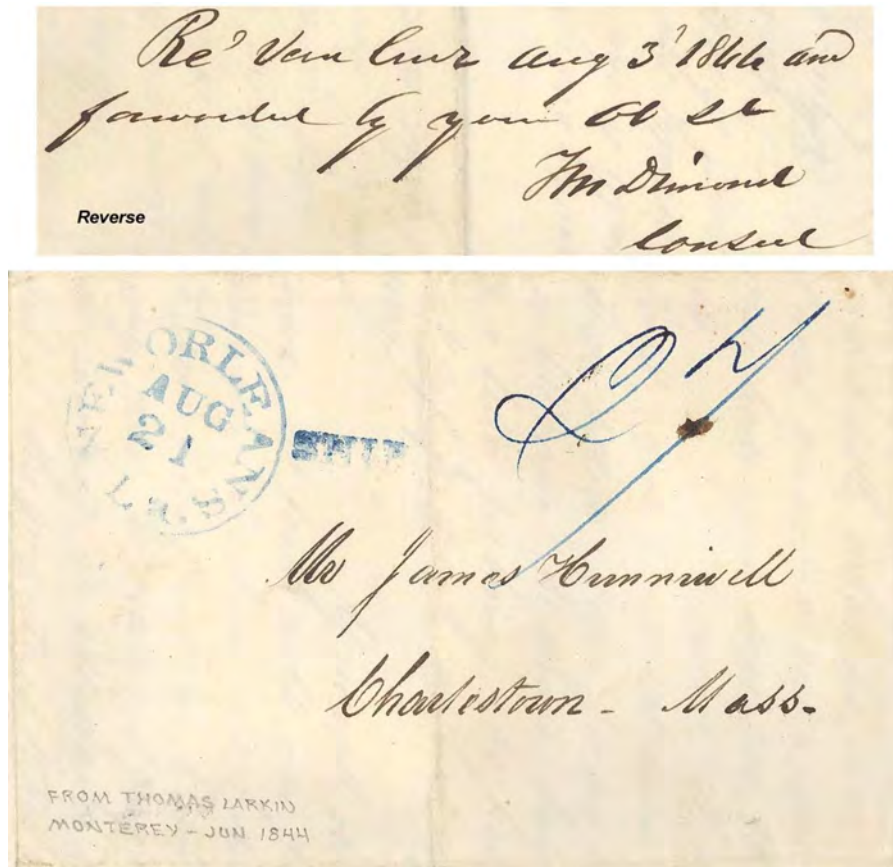 Re'd Vera Cruz Aug 3' 1844 and
forwarded by your Ob St
FM Dimond
Consul
Reverse
NEW ORLEANS
AUG
21
La.
SHIP
27
Mr James Hunniwell
Charlestown - Mass.
FROM THOMAS LARKIN
MONTEREY - JUN. 1844